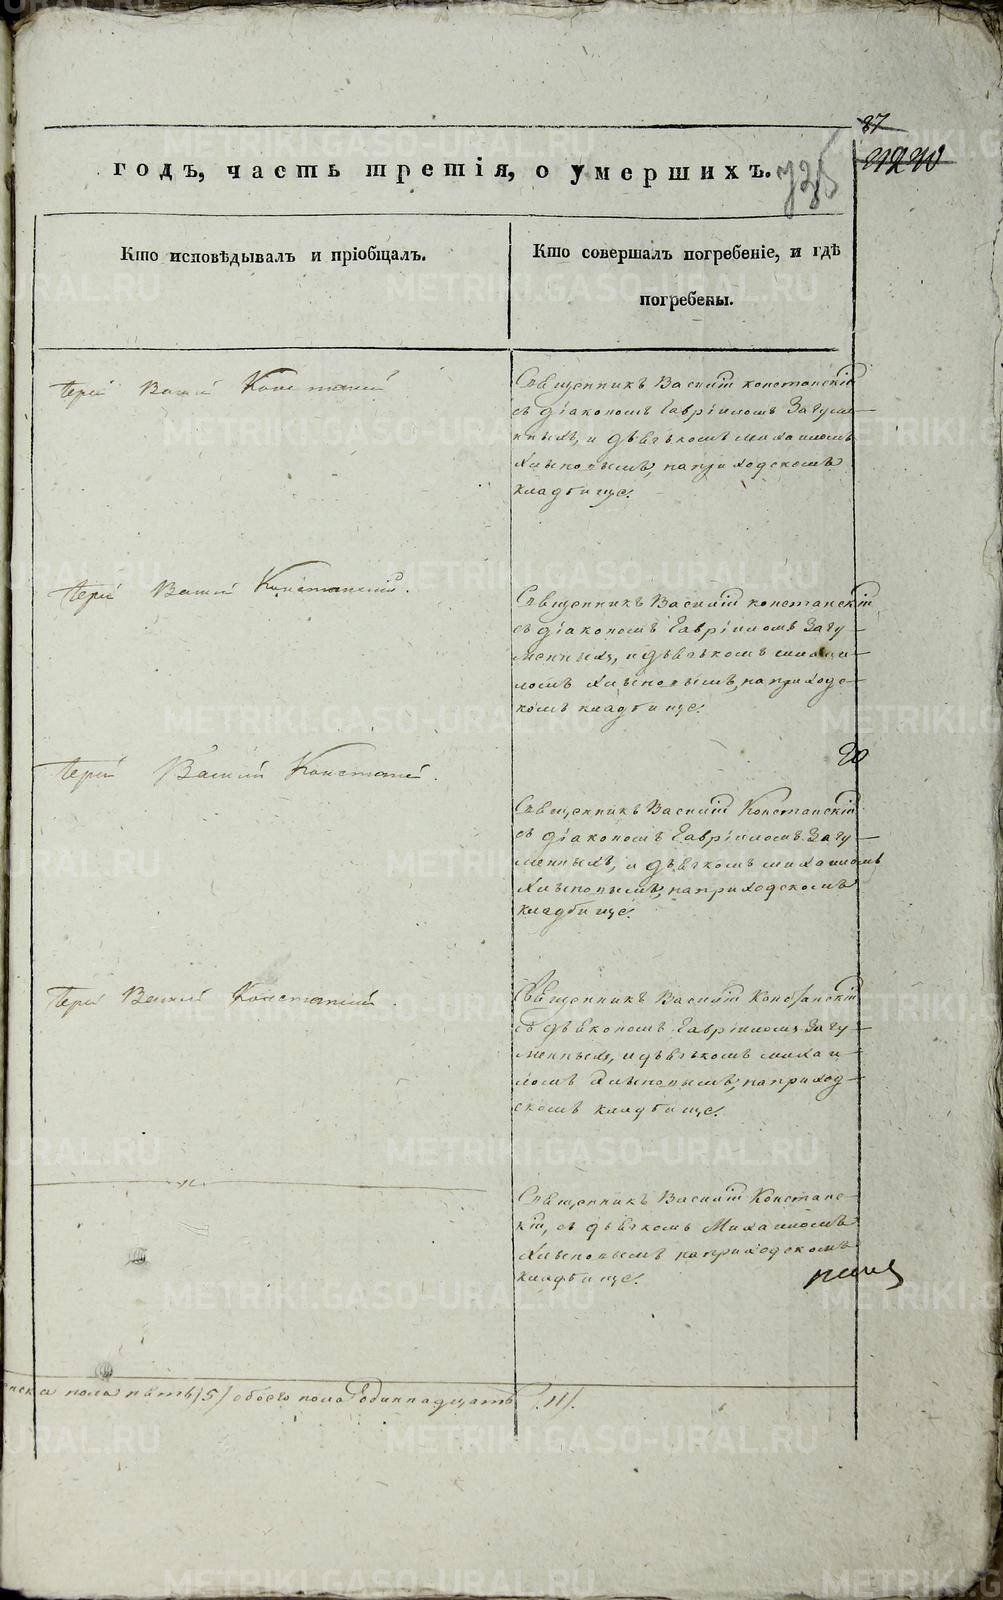 87
годъ, часть третія, о умершихъ.
Кто исповѣдывалъ и пріобщалъ.
Кто совершалъ погребеніе, и гдѣ
погребены.
Іерей Василій Констанскій
Священникъ Василій констанскій
съ діакономъ Гавріиломъ Загуме-
нныхъ, и дьячкомъ михаиломъ
Хлыновымъ, на приходскомъ
кладбище.
Іерей Василій Констанскій.
Священникъ Василій констанскій
съ діакономъ Гавріиломъ Загу-
менныхъ, и дьячкомъ михаи-
ломъ Хлыновымъ, на приходс-
комъ кладбище.
20
Іерей Василій Констанскій.
Священникъ Василій Констанскій
съ діакономъ Гавріиломъ Загу-
менныхъ, и дьячкомъ михаиломъ
Хлыновымъ, на приходскомъ
кладбище.
Іерей Василій Констанскій.
Священникъ Василій Констанскій
съ діакономъ Гавріиломъ Загу-
менныхъ, и дьячкомъ михаи-
ломъ Хлыновымъ, на приход-
скомъ кладбище.
Священникъ Василій Констанс-
кій, съ дьячкомъ Михаиломъ
Хлыновымъ на приходскомъ
кладбище.
пола пять /5/ обоего пола Одиннадцать /11/.
METRIKI.GASO-URAL.RU